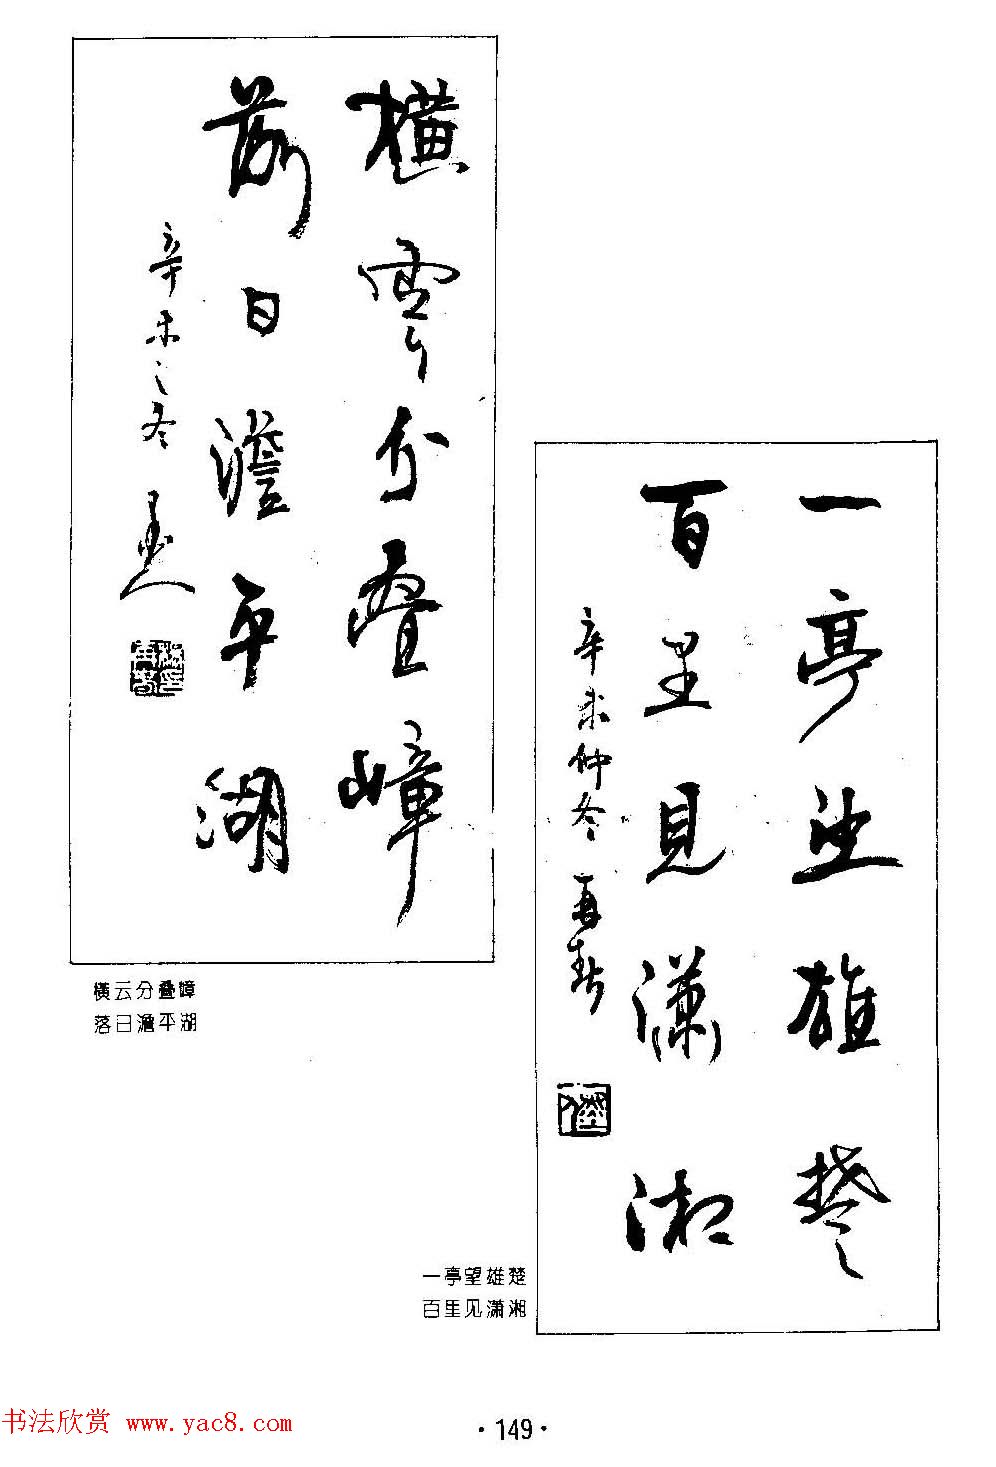 横雲分叠嶂
落日澹平湖
辛未之冬
横云分叠嶂
落日澹平湖
一亭望雄楚
百里見潇湘
辛未仲冬 再春
一亭望雄楚
百里见潇湘
书法欣赏 www.yac8.com
·149·